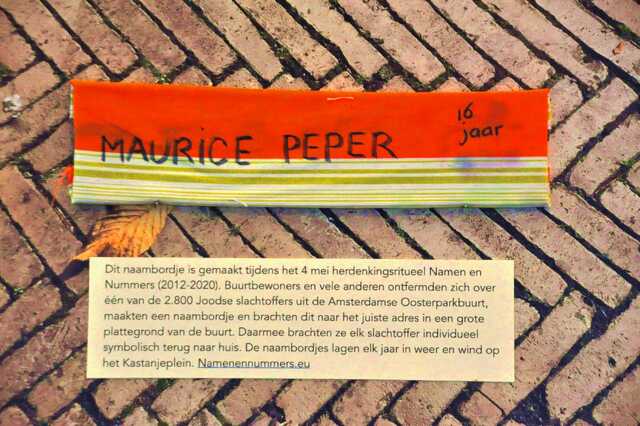 MAURICE PEPER
16
jaar
Dit naambordje is gemaakt tijdens het 4 mei herdenkingsritueel Namen en
Nummers (2012-2020). Buurtbewoners en vele anderen ontfermden zich over
één van de 2.800 Joodse slachtoffers uit de Amsterdamse Oosterparkbuurt,
maakten een naambordje en brachten dit naar het juiste adres in een grote
plattegrond van de buurt. Daarmee brachten ze elk slachtoffer individueel
symbolisch terug naar huis. De naambordjes lagen elk jaar in weer en wind op
het Kastanjeplein. Namenennummers.eu